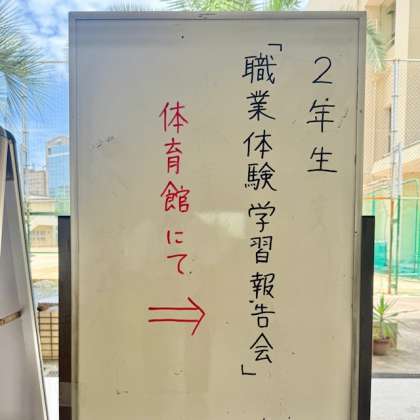 2年生
「職業体験学習報告会」
体育館にて
⇒